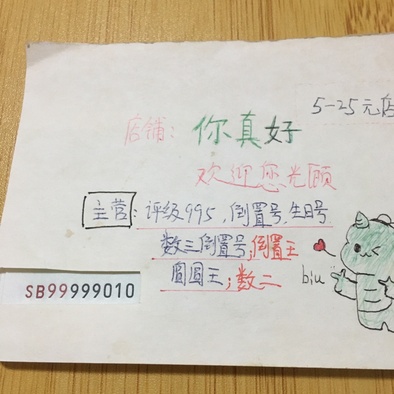 5-25元店
店铺：你真好
欢迎您光顾
主营：评级995，倒置号，生日号
数三倒置号；倒置王
圆圆王；数二
biu
SB99999010